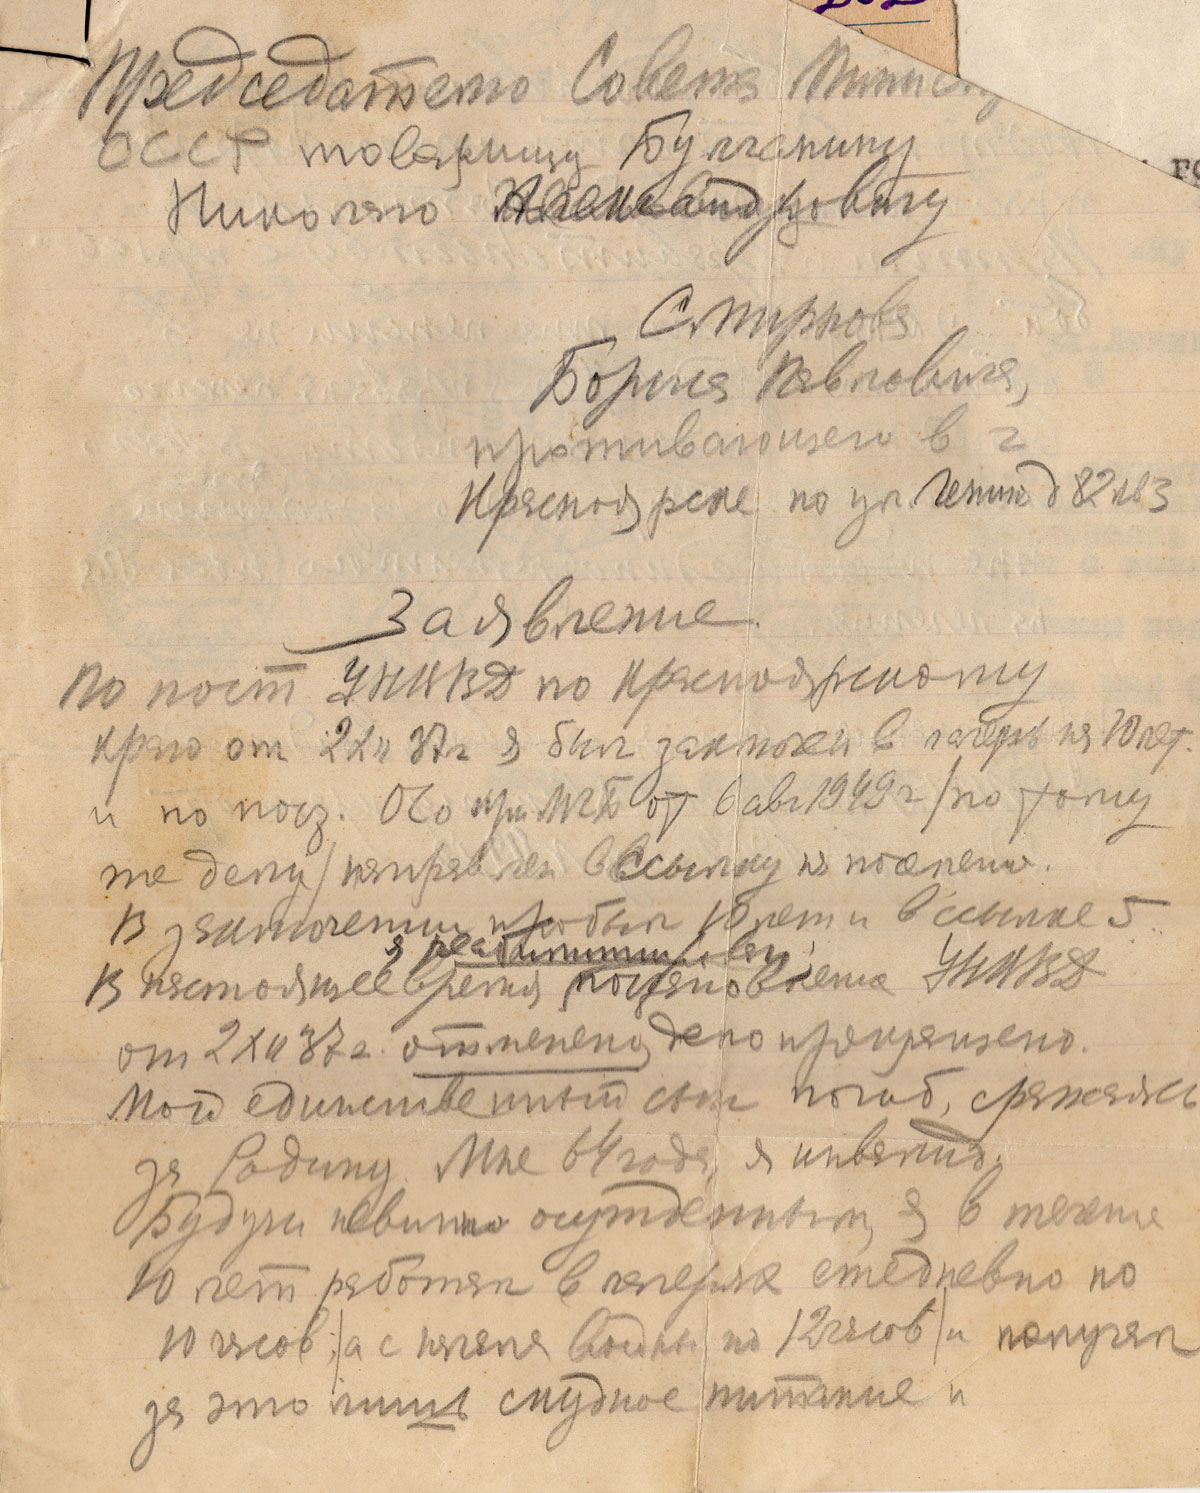 Председателю Совета Минист
СССР товарищу Булганину
Николаю Александровичу
Смирнова
Бориса Павловича,
проживающего в г
Красноярске по ул. Ленина д 82 кв 3
Заявление.
По пост УНКВД по Красноярскому
краю от 2 XII 37 г я был заключен в лагерь на 10 лет.
и по пост. ОСо при МГБ от 6 авг 1949 г /по тому
же делу/ направлен в ссылку на поселение.
В заключении пробыл 10 лет и в ссылке 5.
я реабилитирован;
В настоящее время постановление УНКВД
от 2 XII 37 г. отменено, дело прекращено.
Мой единственный сын погиб, сражаясь
за Родину. Мне 64 года, я инвалид.
Будучи невинно осужденным, я в течение
10 лет работал в лагерях ежедневно по
10 часов, /а с начала войны по 12 часов/ и получал
за это лишь скудное питание и